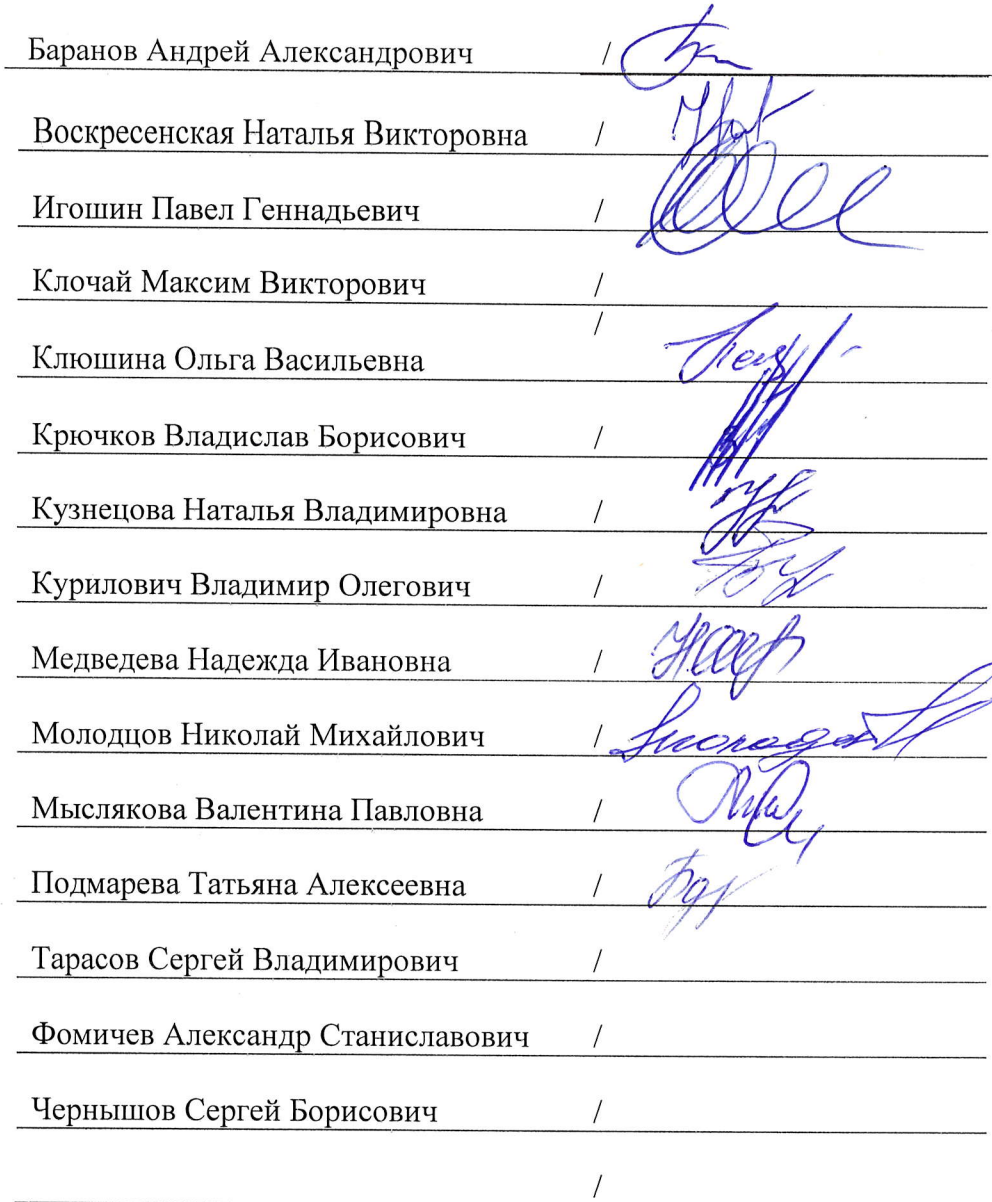 Баранов Андрей Александрович /
Воскресенская Наталья Викторовна /
Игошин Павел Геннадьевич /
Клочай Максим Викторович /
/
Клюшина Ольга Васильевна
Крючков Владислав Борисович /
Кузнецова Наталья Владимировна /
Курилович Владимир Олегович /
Медведева Надежда Ивановна /
Молодцов Николай Михайлович /
Мыслякова Валентина Павловна /
Подмарева Татьяна Алексеевна /
Тарасов Сергей Владимирович /
Фомичев Александр Станиславович /
Чернышов Сергей Борисович /
/